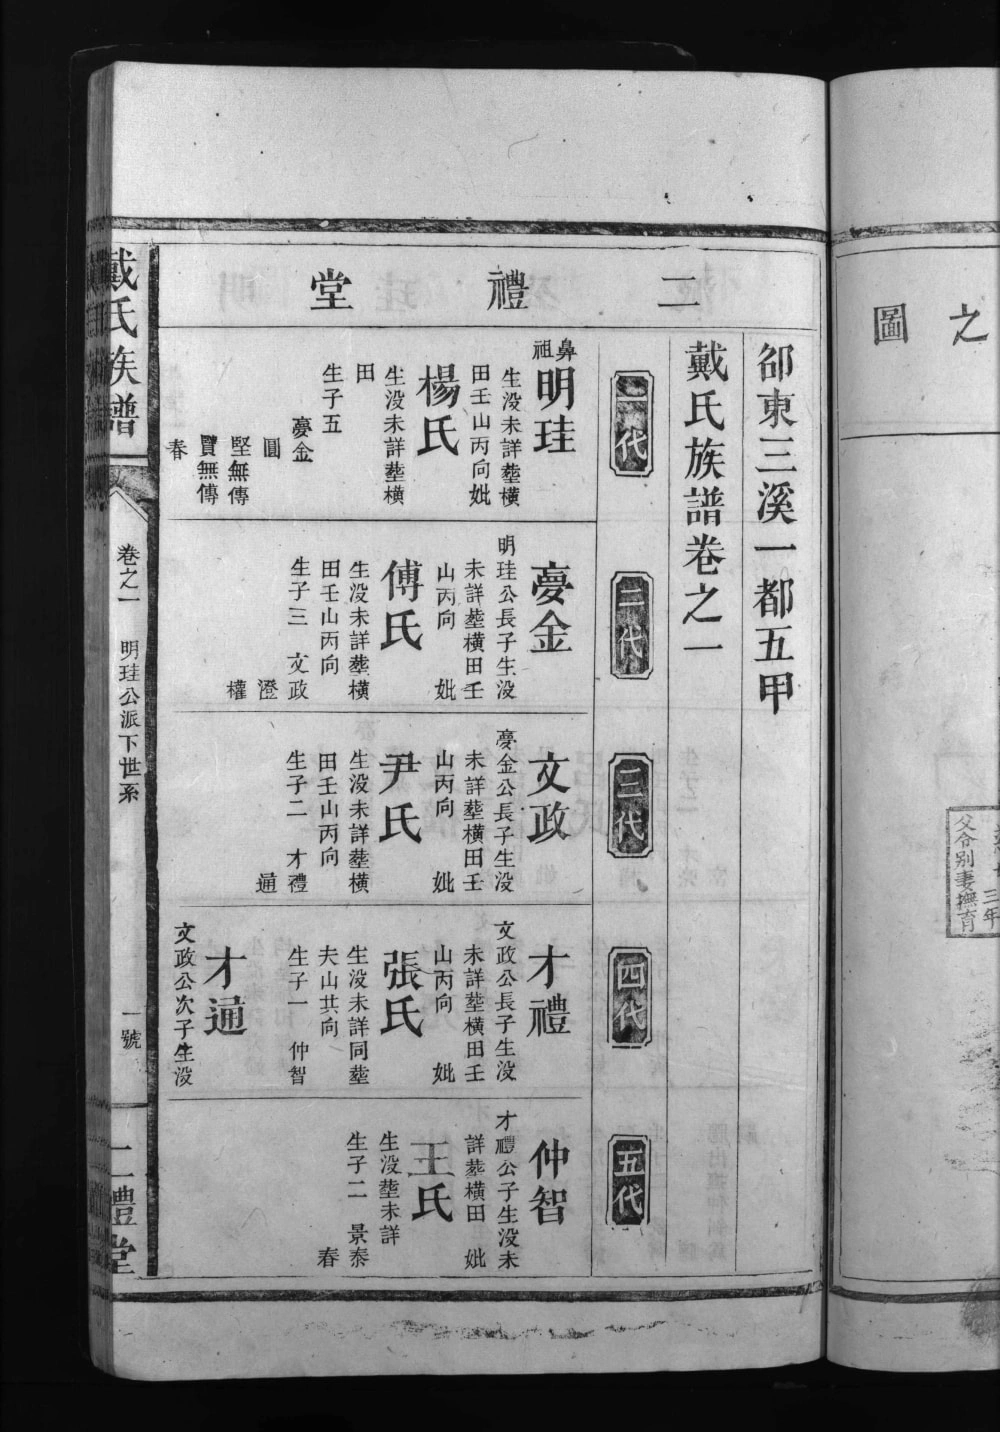 之
圖
父令別妻撫育
二禮堂
邵東三溪一都五甲
戴氏族譜卷之一
一代
鼻祖
明珪
生没未詳塟橫
田壬山丙向妣
楊氏
生没未詳塟橫
田
生子五
夢金
圓
堅無傳
寶無傳
春
二代
夢金
明珪公長子生没
未詳塟橫田壬
山丙向 妣
傅氏
生没未詳塟橫
田壬山丙向
生子三 文政
澄
權
三代
文政
夢金公長子生没
未詳塟橫田壬
山丙向 妣
尹氏
生没未詳塟橫
田壬山丙向
生子二 才禮
通
四代
才禮
文政公長子生没
未詳塟橫田壬
山丙向 妣
張氏
生没未詳同塟
夫山共向
生子一 仲智
才通
文政公次子生没
五代
仲智
才禮公子生没未
詳塟橫田 妣
王氏
生没塟未詳
生子二 景泰
春
戴氏族譜
卷之一 明珪公派下世系 一號
二禮堂